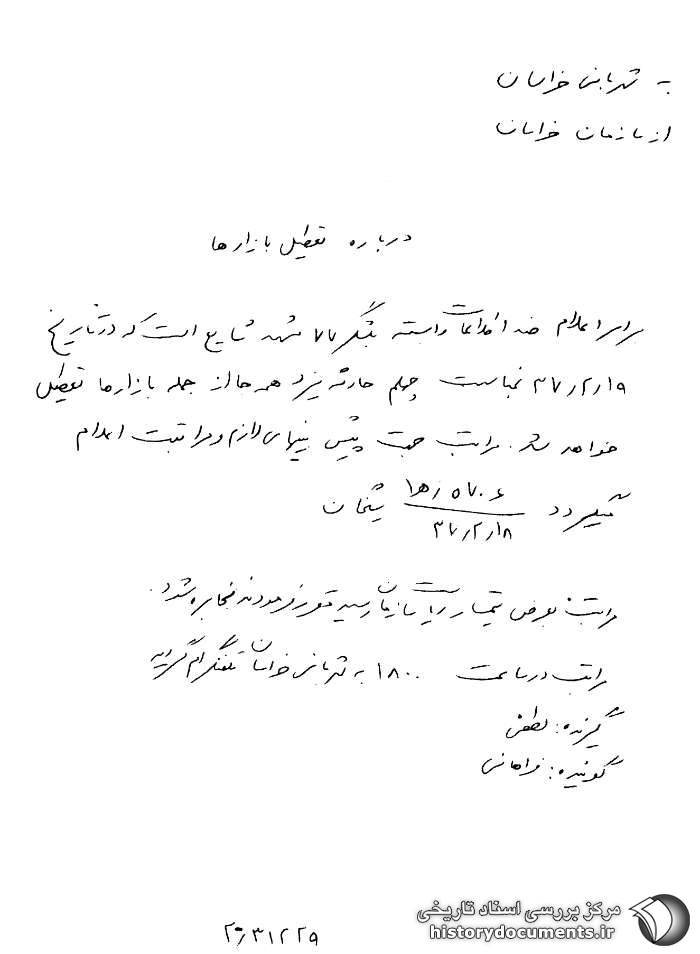 به شهربانی خراسان
از سازمان خراسان
درباره تعطیل بازارها
برابر اعلام ضد اطلاعات وابسته بلشگر ۷۷ مشهد شایع است که در تاریخ
۳۷/۲/۱۹ بمناسبت چهلم حادثه یزد همه جا از جمله بازارها تعطیل
خواهد شد. مراتب جهت پیش بینیهای لازم و مراقبت اعلام
میگردد
۳۷/۲/۱۸
مراتب بعرض تیمسار ریاست سازمان رسید مقرر فرمودند مخابره شود.
مراتب در ساعت ۱۸۰۰ به شهربانی خراسان تلفنگرام گردید
گیرنده: لطفی
گوینده: فراهانی
مرکز بررسی اسناد تاریخی
historydocuments.ir